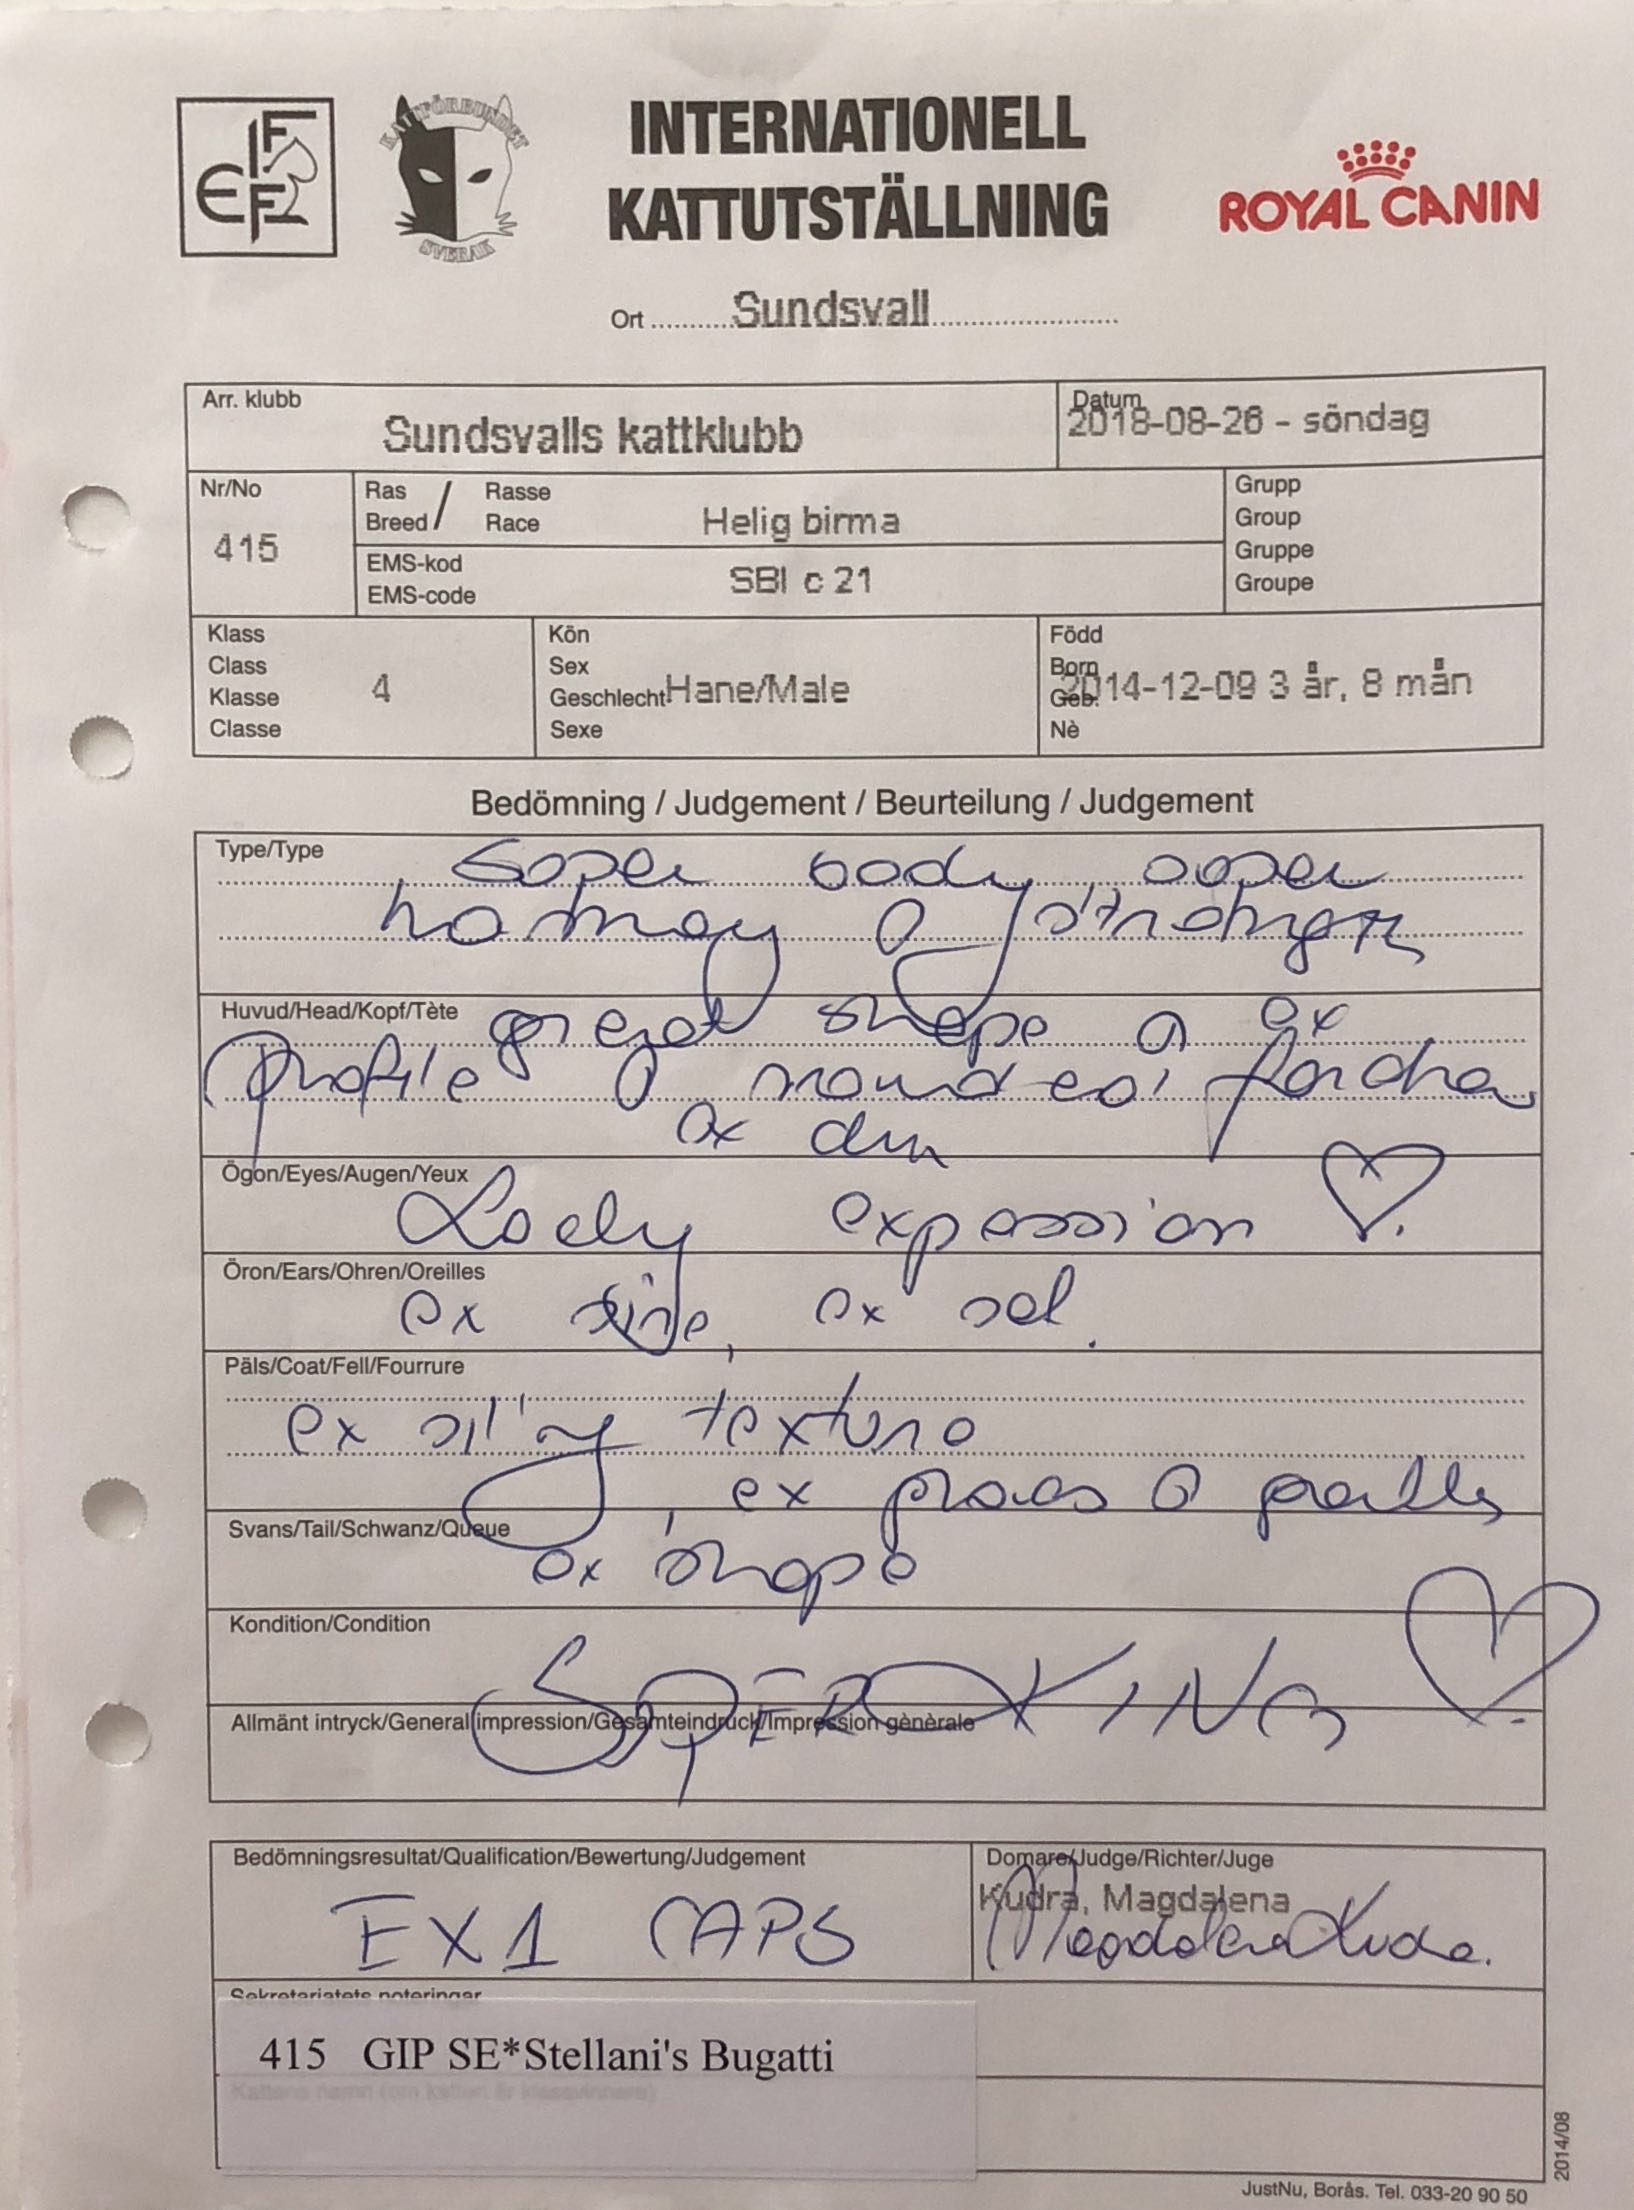 FIFE
KATTFÖRBUNDET
SVERAK
INTERNATIONELL
KATTUTSTÄLLNING
ROYAL CANIN
Ort Sundsvall
Arr. klubb
Sundsvalls kattklubb
Datum
2018-08-26 - söndag
Nr/No
415
Ras / Rasse
Breed / Race
Helig birma
EMS-kod
EMS-code
SBI c 21
Grupp
Group
Gruppe
Groupe
Klass
Class
Klasse
Classe
4
Kön
Sex
Geschlecht Hane/Male
Sexe
Född
Born
Geb. 2014-12-09 3 år, 8 mån
Nè
Bedömning / Judgement / Beurteilung / Judgement
Type/Type
super body, super
Huvud/Head/Kopf/Tète
great shape ex
profile
ex chin
Ögon/Eyes/Augen/Yeux
expression ♡.
Öron/Ears/Ohren/Oreilles
ex size, ex set.
Päls/Coat/Fell/Fourrure
ex texture
, ex
Svans/Tail/Schwanz/Queue
ex shape
Kondition/Condition
SUPER KING ♡.
Allmänt intryck/General impression/Gesamteindruck/Impression gènèrale
Bedömningsresultat/Qualification/Bewertung/Judgement
EX1 CAPS
Domare/Judge/Richter/Juge
Kudra, Magdalena
Magdalena Kudra.
Sekretariatets noteringar
415 GIP SE*Stellani's Bugatti
Kattens namn (om katten är klassvinnare)
2014/08
JustNu, Borås. Tel. 033-20 90 50